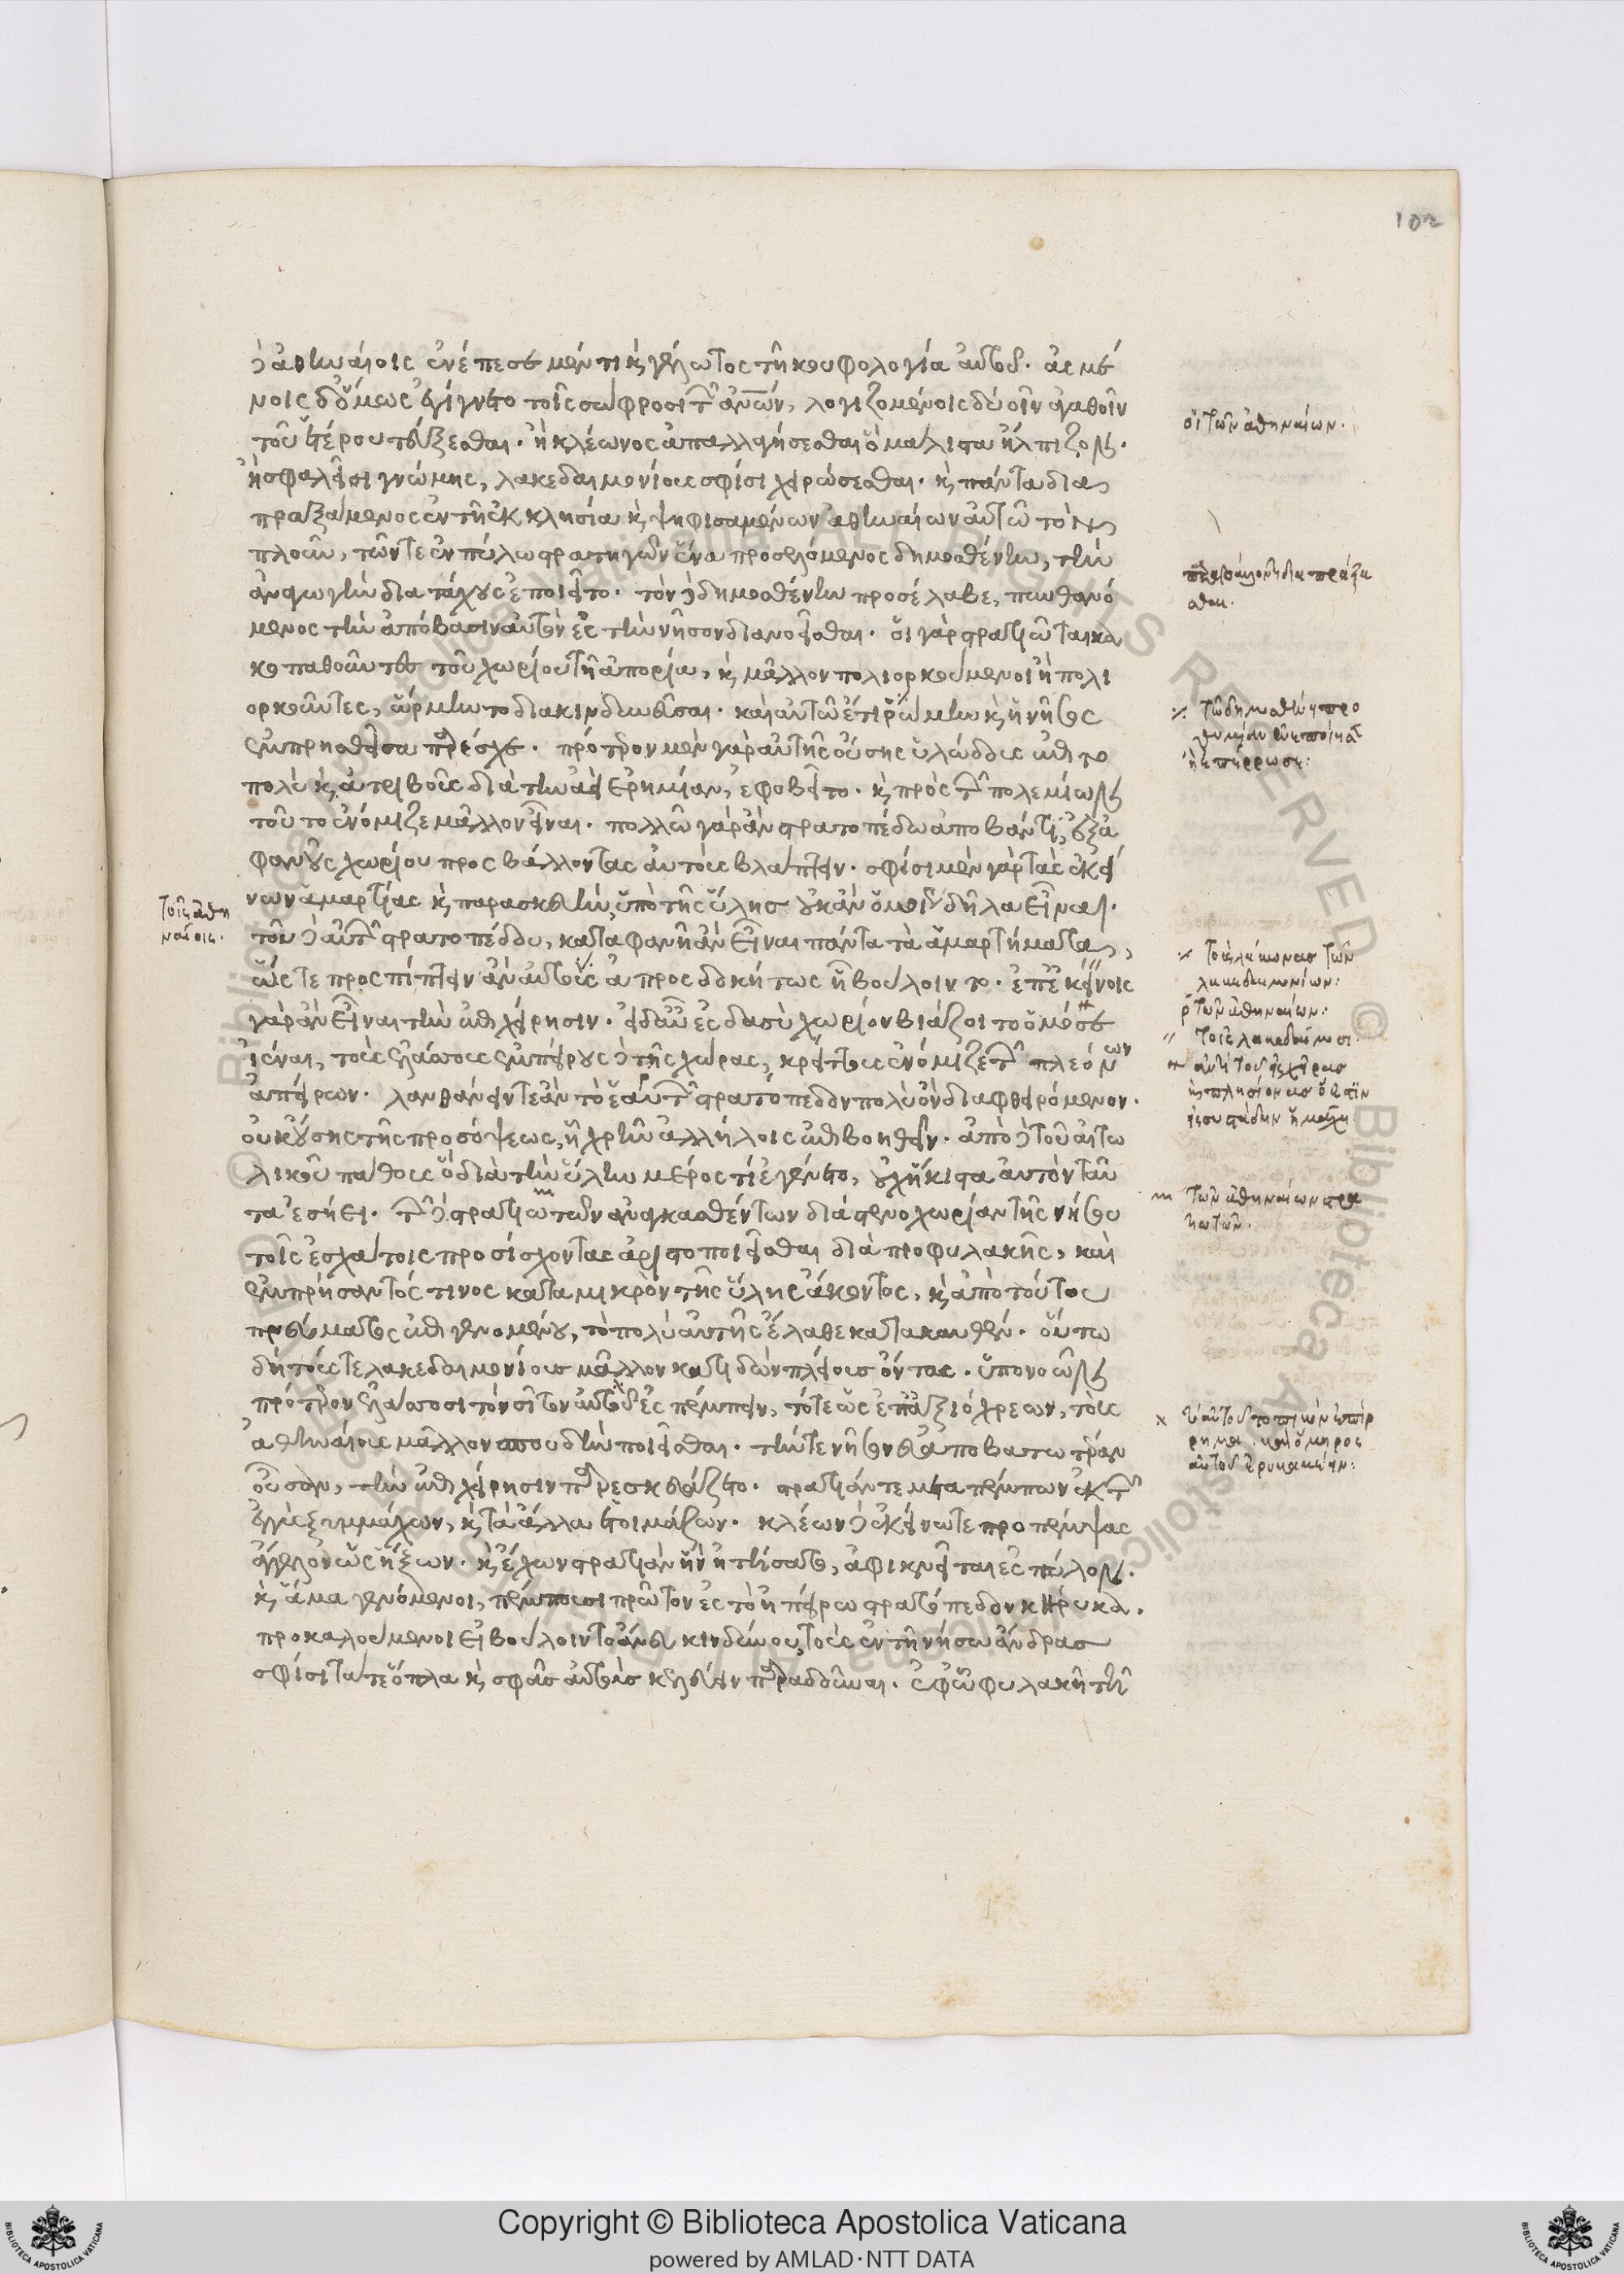 102
δὲ ἀθηναίοις ἐνέπεσε μέν τι καὶ γέλωτος τῆ κουφολογία αὐτοῦ. ἀσμέ
νοις δ' ὅμως ἐγίγνετο τοῖς σώφροσι τῶν ἀνων, λογιζομένοις δυοῖν ἀγαθοῖν
τοῦ ἑτέρου τεύξεσθαι. ἢ κλέωνος ἀπαλλαγήσεσθαι ὃ μάλιστα ἤλπιζον.
ἢ σφαλεῖσι γνώμης, λακεδαιμονίους σφίσι χειρώσεσθαι. καὶ πάντα δια
πραξάμενος ἐν τῆ ἐκκλησία καὶ ψηφισαμένων ἀθηναίων αὐτῶ τὸν
πλοῦν, τῶν τε ἐν πύλω στρατηγῶν ἕνα προσελόμενος δημοσθένην, τὴν
ἀναγωγὴν διὰ τάχους ἐποιεῖτο. τὸν δὲ δημοσθένην προσέλαβε, πυνθανό
μενος τὴν ἀπόβασιν αὐτὸν ἐς τὴν νῆσον διανοεῖσθαι. οἱ γὰρ στρατιῶται κα
κοπαθοῦντες τοῦ χωρίου τῆ ἀπορία, καὶ μᾶλλον πολιορκούμενοι ἢ πολι
ορκοῦντες, ὥρμηντο διακινδυνεῦσαι. καὶ αὐτῶ ἔτι ῥώμην καὶ ἡ νῆσος
ἐμπρησθεῖσα παρέσχε. πρότερον μὲν γὰρ αὐτῆς οὔσης ὑλώδους ἐπὶ το
πολὺ καὶ ἀτριβοῦς διὰ τὴν ἀεὶ ἐρημίαν, ἐφοβεῖτο. καὶ πρὸς τῶν πολεμίων
τοῦτο ἐνόμιζε μᾶλλον εἶναι. πολλῶ γὰρ ἂν στρατοπέδω ἀποβάντι, ἐξ ἀ
φανοῦς χωρίου προσβάλλοντας αὐτοὺς βλάπτειν. σφίσι μὲν γὰρ τὰς ἐκεί
νων ἁμαρτίας καὶ παρασκευὴν, ὑπὸ τῆς ὕλης οὐκ ἂν ὁμοίως δῆλα εἶναι.
τοῦ δὲ αὐτῶν στρατοπέδου, καταφανῆ ἂν εἶναι πάντα τὰ ἁμαρτήματα,
ὥστε προσπίπτειν ἂν αὐτοὺς ἀπροσδοκήτως ἧ βούλοιντο. ἐπ' ἐκείνοις
γὰρ ἂν εἶναι τὴν ἐπιχείρησιν. εἰ δ' αὖ ἐς δασὺ χωρίον βιάζοιτο ὁμόσε
ἰέναι, τοὺς ἐλάσσους ἐμπείρους δὲ τῆς χώρας, κρείττους ἐνόμιζε τῶν πλεόνων
ἀπείρων. λανθάνειν τε ἂν τὸ ἑαυτῶν στρατόπεδον πολὺ ὂν διαφθειρόμενον.
οὐκ οὔσης τῆς προσόψεως, ἧ χρῆν ἀλλήλοις ἐπιβοηθεῖν. ἀπὸ δὲ τοῦ αἰτω
λικοῦ πάθους ὃ διὰ τὴν ὕλην μέρος τι ἐγένετο, οὐχ ἥκιστα αὐτὸν ταῦ
τα ἐσῄει. τῶν δὲ στρατιωτῶν ἀναγκασθέντων διὰ στενοχωρίαν τῆς νήσου
τοῖς ἐσχάτοις προσίσχοντας ἀριστοποιεῖσθαι διὰ προφυλακῆς, καὶ
ἐμπρήσαντός τινος κατὰ μικρὸν τῆς ὕλης ἄκοντος, καὶ ἀπὸ τούτου
πνεύματος ἐπιγενομένου, τὸ πολὺ αὐτῆς ἔλαθε κατακαυθέν. οὕτω
δὴ τούς τε λακεδαιμονίους μᾶλλον κατιδὼν πλείους ὄντας. ὑπονοῶν
πρότερον ἐλάσσοσι τὸν σῖτον αὐτοῦ ἐς πέμπειν, τότε ὡς ἐπ' ἀξιόχρεων, τοὺς
ἀθηναίους μᾶλλον σπουδὴν ποιεῖσθαι. τήν τε νῆσον εὐαποβατωτέραν
οὖσαν, τὴν ἐπιχείρησιν παρεσκευάζετο. στρατιάν τε μεταπέμπων ἐκ τῶν
ἐγγὺς ξυμμάχων, καὶ τὰ ἄλλα ἑτοιμάζων. κλέων δὲ ἐκείνω τε προπέμψας
ἄγγελον ὡς ἥξων. καὶ ἔχων στρατιὰν ἣν ᾐτήσατο, ἀφικνεῖται ἐς πύλον.
καὶ ἅμα γενόμενοι, πέμπουσι πρῶτον ἐς τὸ ἐν τῆ ἠπείρω στρατόπεδον κήρυκα.
προκαλούμενοι εἰ βούλοιντο ἄνευ κινδύνου, τοὺς ἐν τῆ νήσω ἄνδρας
σφίσι τά τε ὅπλα καὶ σφᾶς αὐτοὺς κελεύειν παραδοῦναι. ἐφ' ὧ φυλακῆ τῆ
οἱ τῶν ἀθηναίων.
τῶ δημοσθένη προ
τοῖς ἀθη
ναίοις.
τοὺς λάκωνας τῶν
λακεδαιμονίων:
τῶν ἀθηναίων:
τοῖς λακεδαίμοσι
τῶν ἀθηναίων στρα
τιωτῶν.